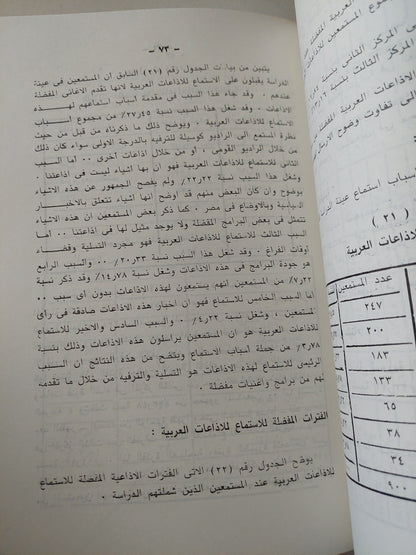 - ٧٣ -
يتبين من بيانات الجدول رقم (٢١) السابق ان المستمعين فى عينة
الدراسة يقبلون على الاستماع للاذاعات العربية لانها تقدم الاغانى المفضلة
عندهم . وقد جاء هذا السبب فى مقدمة أسباب استماعهم لهذه
الاذاعات . وشغل هذا السبب نسبة ٢٧٫٤٥٪ من مجموع أسباب
الاستماع للاذاعات العربية . ويوضح ذلك ما ذكرناه من قبل من حيث
نظرة المستمع الى الراديو كوسيلة للترفيه بالدرجة الاولى سواء كان ذلك
من خلال الراديو القومى ، أو من خلال اذاعات أخرى . . أما السبب
الثانى للاستماع للاذاعات العربية فهو ان بها أشياء ليست فى اذاعتنا .
وشغل هذا السبب نسبة ٢٢٫٢٢٪ ولم يفصح الجمهور عن هذه الاشياء
بوضوح وان كان البعض منهم قد اوضح أنها أشياء تتعلق بالاخبار
السياسية وبالاوضاع فى مصر . كما ذكر بعض المستمعين ان هذه الاشياء
تتمثل فى بعض البرامج المفضلة ولا يوجد مثيل لها فى اذاعتنا . . أما
السبب الثالث للاستماع للاذاعات العربية فهو مجرد التسلية وقضاء
أوقات الفراغ . وقد شغل هذا السبب نسبة ٢٠٫٣٣٪ . . والسبب الرابع
هو جودة البرامج فى هذه الاذاعات وشغل نسبة ١٤٫٧٨٪ وقد ذكر نسبة
٧٫٢٢٪ من المستمعين انهم يستمعون لهذه الاذاعات بدون أى سبب . .
أما السبب الخامس للاستماع فهو ان اخبار هذه الاذاعات صادقة فى رأى
المستمعين ، وشغل نسبة ٤٫٢٢٪ . والسبب السادس والاخير للاستماع
للاذاعات العربية هو ان المستمعين يراسلون هذه الاذاعات وذلك بنسبة
٣٫٧٨٪ من جملة أسباب الاستماع ويتضح من هذه النتائج ان السبب
الرئيسى للاستماع لهذه الاذاعات هو التسلية والترفيه من خلال ما تقدمه
لهم من برامج وأغنيات مفضلة .
الفترات المفضلة للاستماع للاذاعات العربية :
يوضح الجدول رقم (٢٢) الاتى الفترات الاذاعية المفضلة للاستماع
للاذاعات العربية عند المستمعين الذين شملتهم الدراسة .
الاذاعات العربية المفضلة
المركز الثانى بنسبة
المركز الثالث بنسبة
الاذاعات العربية المفضلة
الى تفاوت وضوح
أسباب استماع عينة
(٢١)
للاذاعات العربية
عدد المستمعين
٢٤٧
٢٠٠
١٨٣
١٣٣
٦٥
٣٨
٣٤
٩٠٠